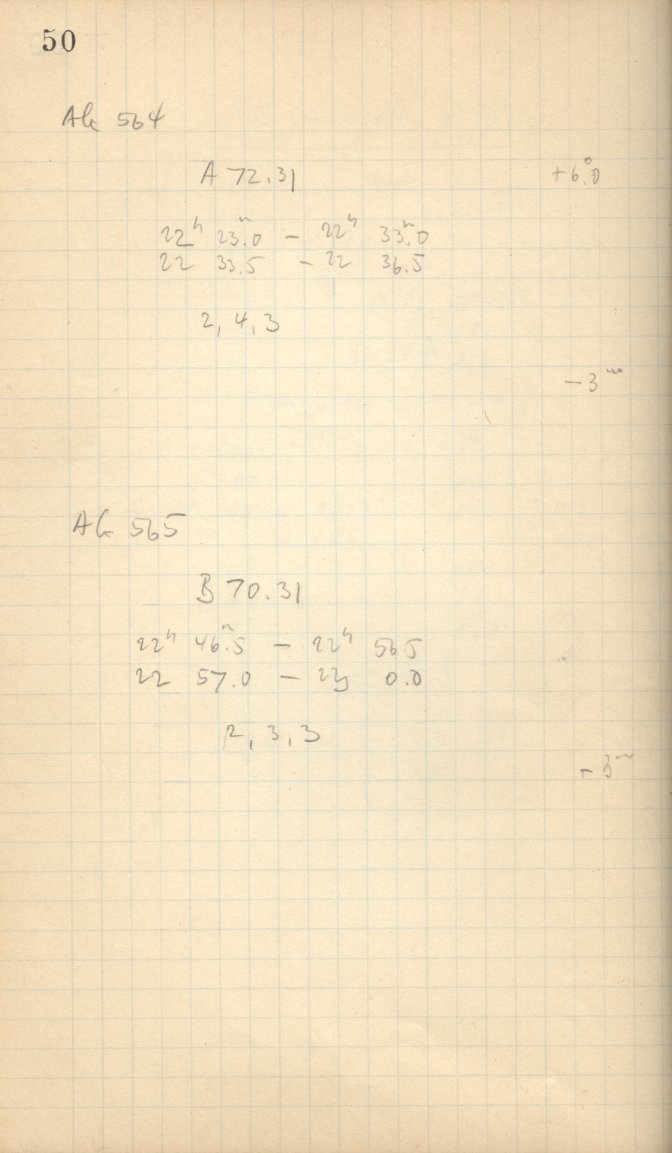 50
Ak 564
A 72.31 +6°.0
22h 23m.0 – 22h 33m.0
22 33.5 – 22 36.5
2, 4, 3
– 3m
Ak 565
B 70.31
22h 46m.5 – 22h 56.5
22 57.0 – 23 0.0
2, 3, 3
– 3m